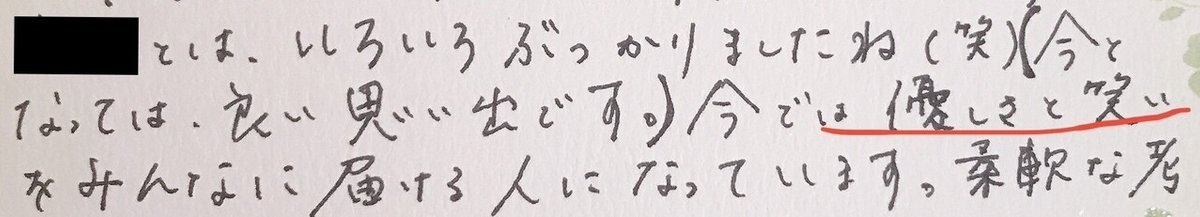 とは、いろいろぶつかりましたね(笑)(今と
なっては、良い思い出です。)今では優しさと笑い
をみんなに届ける人になっています。柔軟な考